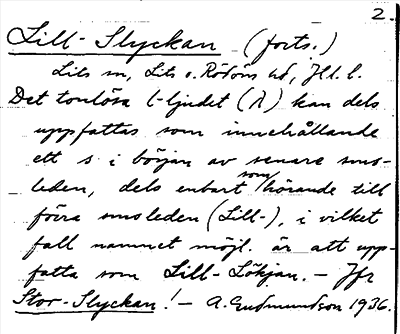 2.
Lill-Slyckan (forts.)
Lits sn, Lits o. Rödöns hd, Jtl. l.
Det tonlösa l-ljudet (λ) kan dels
uppfattas som innehållande
ett s i början av senare sms-
leden, dels enbart som hörande till
förra smsleden (Lill-), i vilket
fall namnet möjl. är att upp-
fatta som Lill-Lökjan. – Jfr
Stor-Slyckan! – A. Gudmundson 1936.